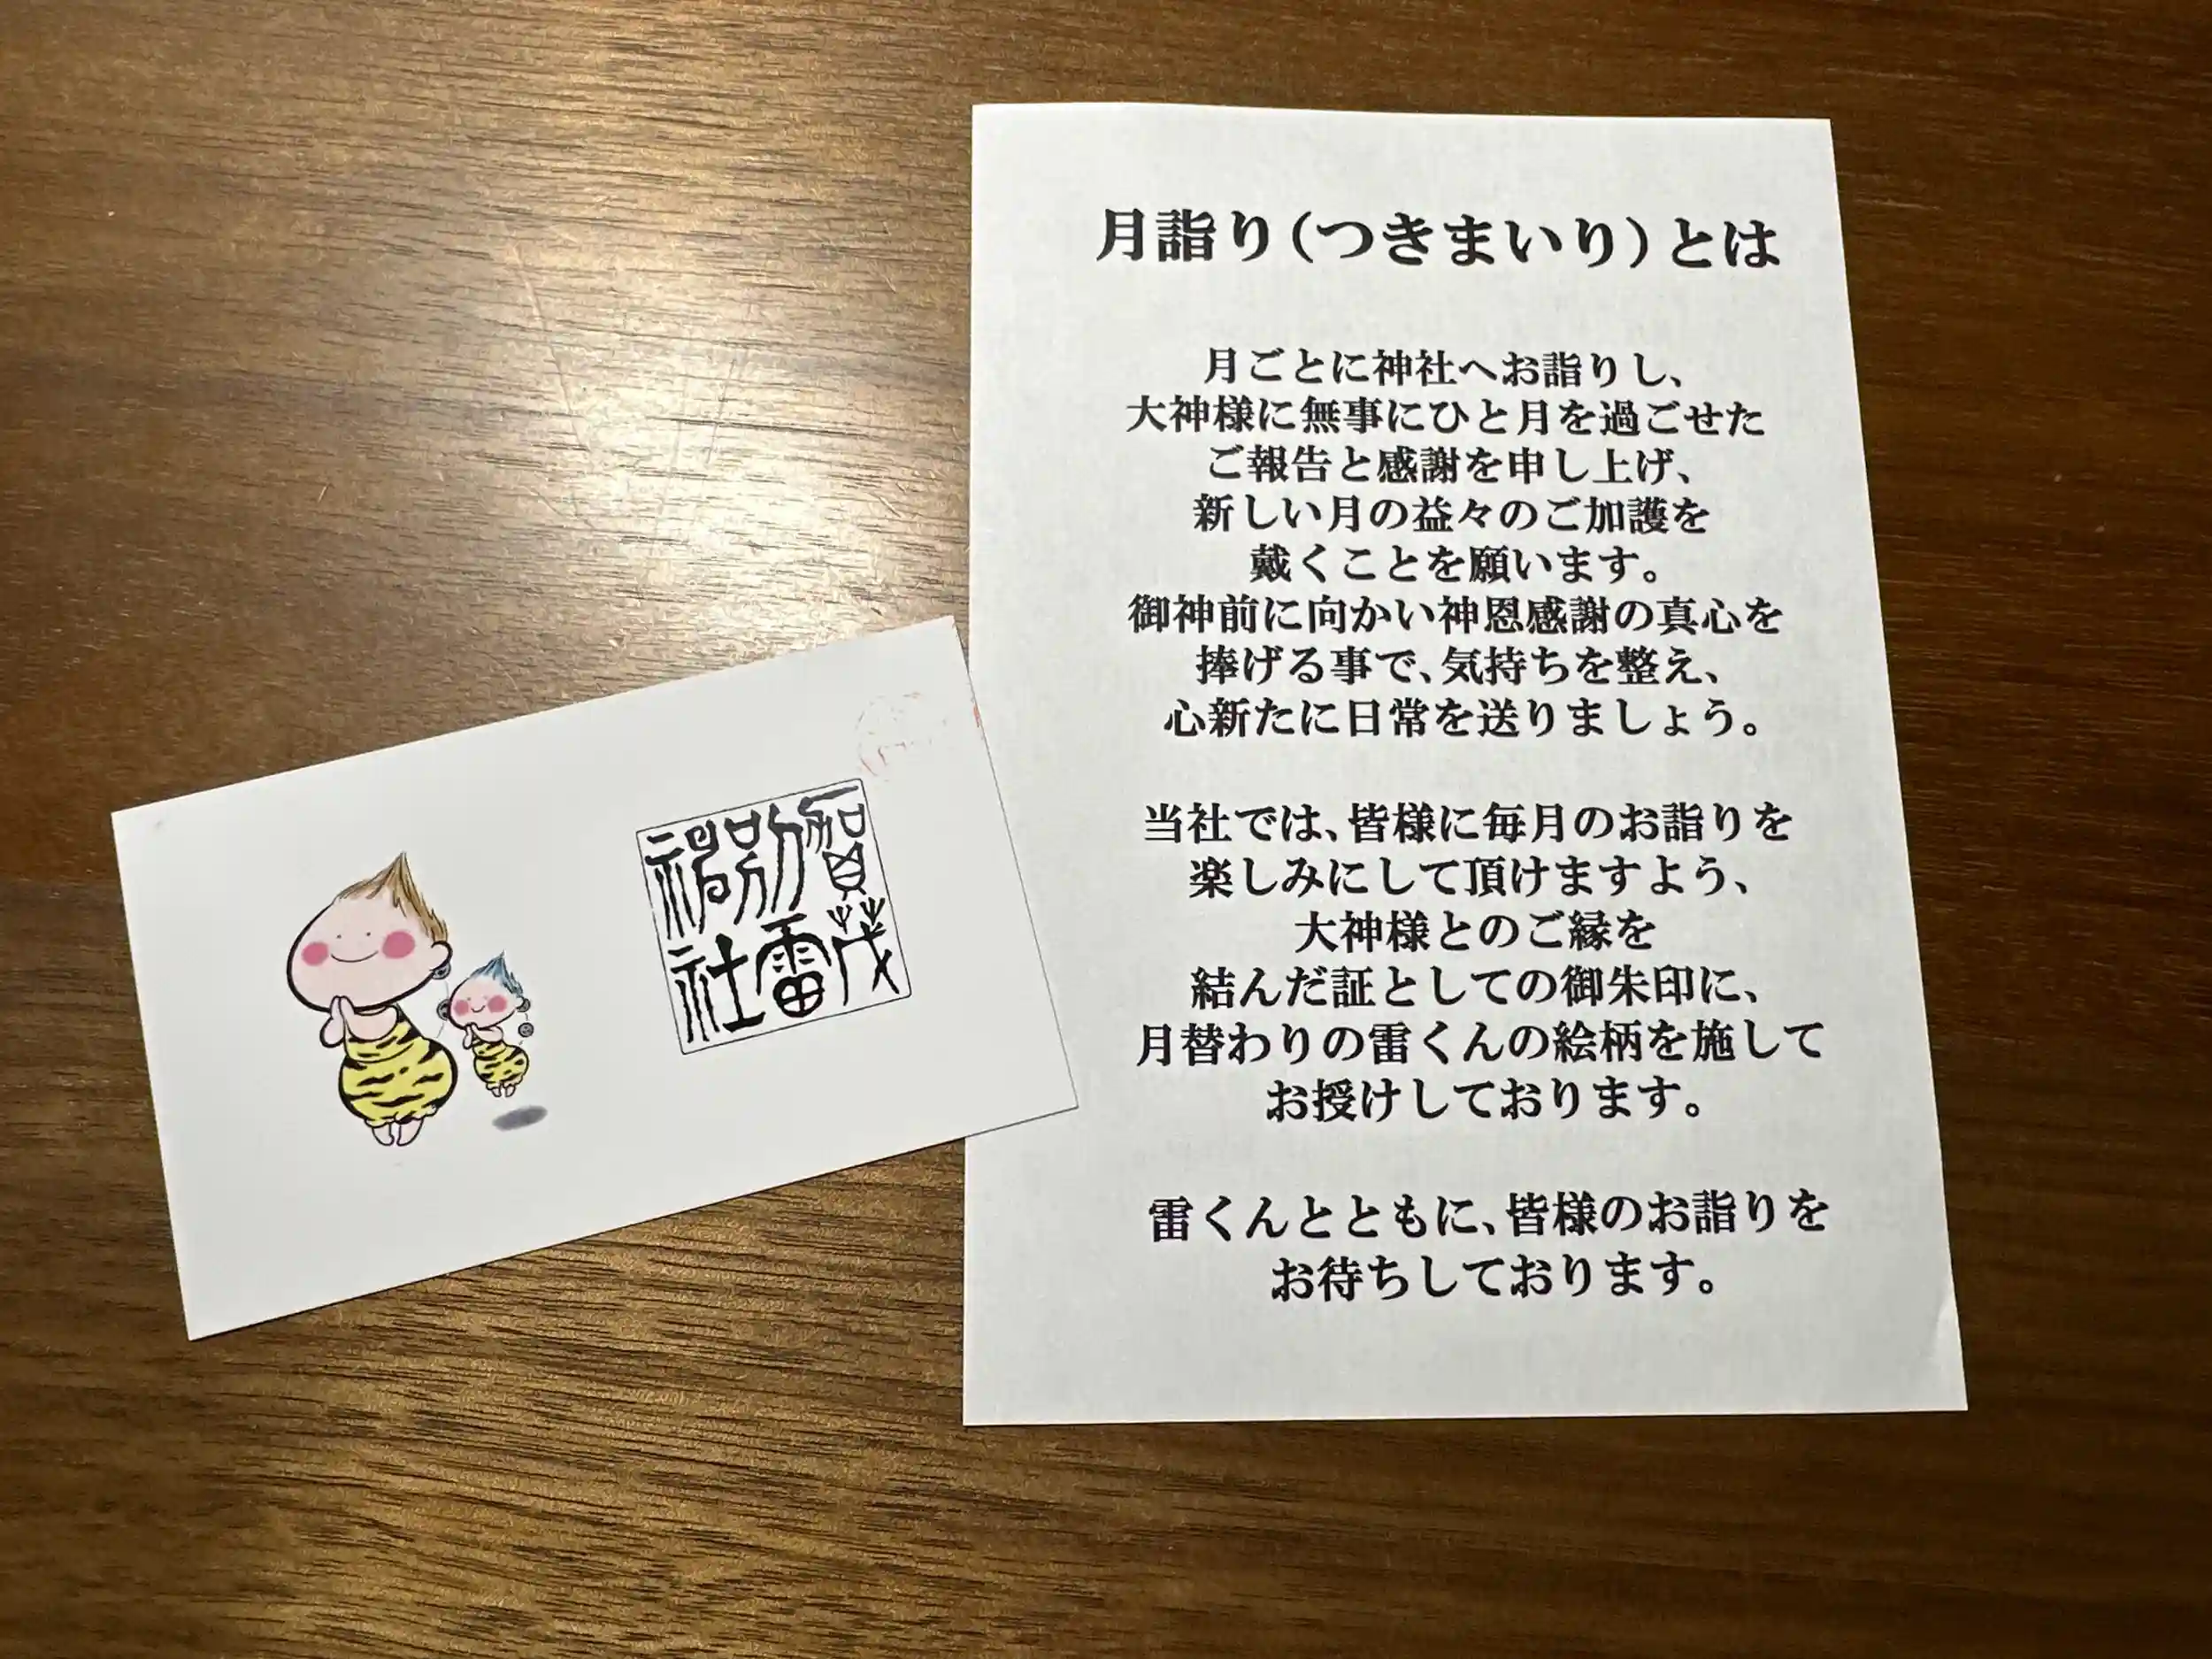 月詣り(つきまいり)とは
月ごとに神社へお詣りし、
大神様に無事にひと月を過ごせた
ご報告と感謝を申し上げ、
新しい月の益々のご加護を
戴くことを願います。
御神前に向かい神恩感謝の真心を
捧げる事で、気持ちを整え、
心新たに日常を送りましょう。
当社では、皆様に毎月のお詣りを
楽しみにして頂けますよう、
大神様とのご縁を
結んだ証としての御朱印に、
月替わりの雷くんの絵柄を施して
お授けしております。
雷くんとともに、皆様のお詣りを
お待ちしております。
賀茂
別雷
神社